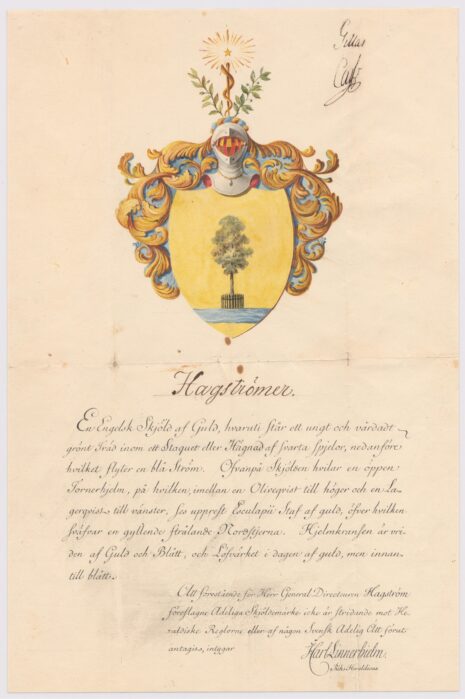 Gillas
Hagströmer.
En Engelsk Skjöld af Guld, hvaruti står ett ungt och vårdadt
grönt Träd inom ett Staquet eller Hägnad af svarta Spjelor, nedanföre
hvilket flyter en blå Ström. Ofvanpå Skjölden hvilar en öppen
Tornerhjelm, på hvilken, imellan en Oliveqvist till höger och en La-
gerqvist till vänster, ses upprest Esculapii Staf af guld, öfver hvilken
sväfvar en gyllende strålande Nordstjerna. Hjelmkransen är vri-
den af Guld och Blått, och Löfvärket i dagen af guld, men innan-
till blått.
Att förestående för Herr General Directeuren Hagström
föreslagne Adeliga Sköldemärke icke är stridande mot He-
raldiske Reglorne eller af någon Svensk Adelig Ätt förut
antagits, intygar
Lönnerhielm.
Riks Heraldicus